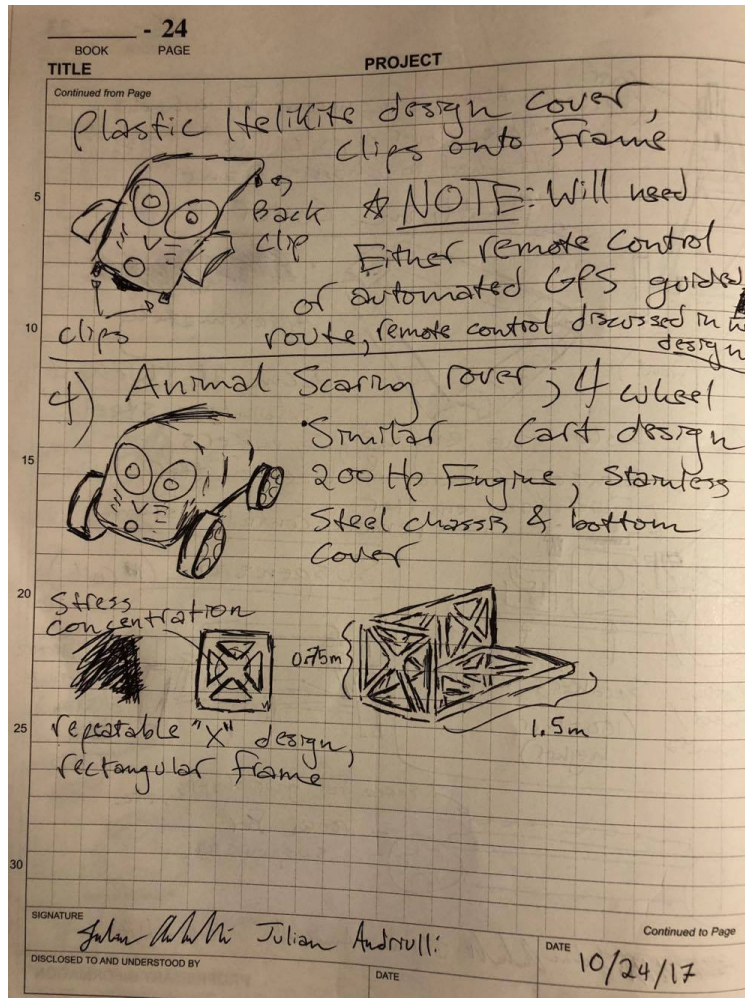 - 24
BOOK PAGE
TITLE PROJECT
Continued from Page
Plastic Helikite design cover,
clips onto frame
Back
clip
clips
☆ NOTE: Will need
Either remote control
or automated GPS guided
route, remote control discussed in
design
4) Animal Scaring rover; 4 wheel
• Similar Cart design
200 Hp Engine, Stainless
Steel chassis & bottom
cover
Stress
concentration
0.75m
1.5m
repeatable "X" design,
rectangular frame
5
10
15
20
25
30
SIGNATURE
Julian Andriulli
Continued to Page
DISCLOSED TO AND UNDERSTOOD BY
DATE
DATE
10/24/17